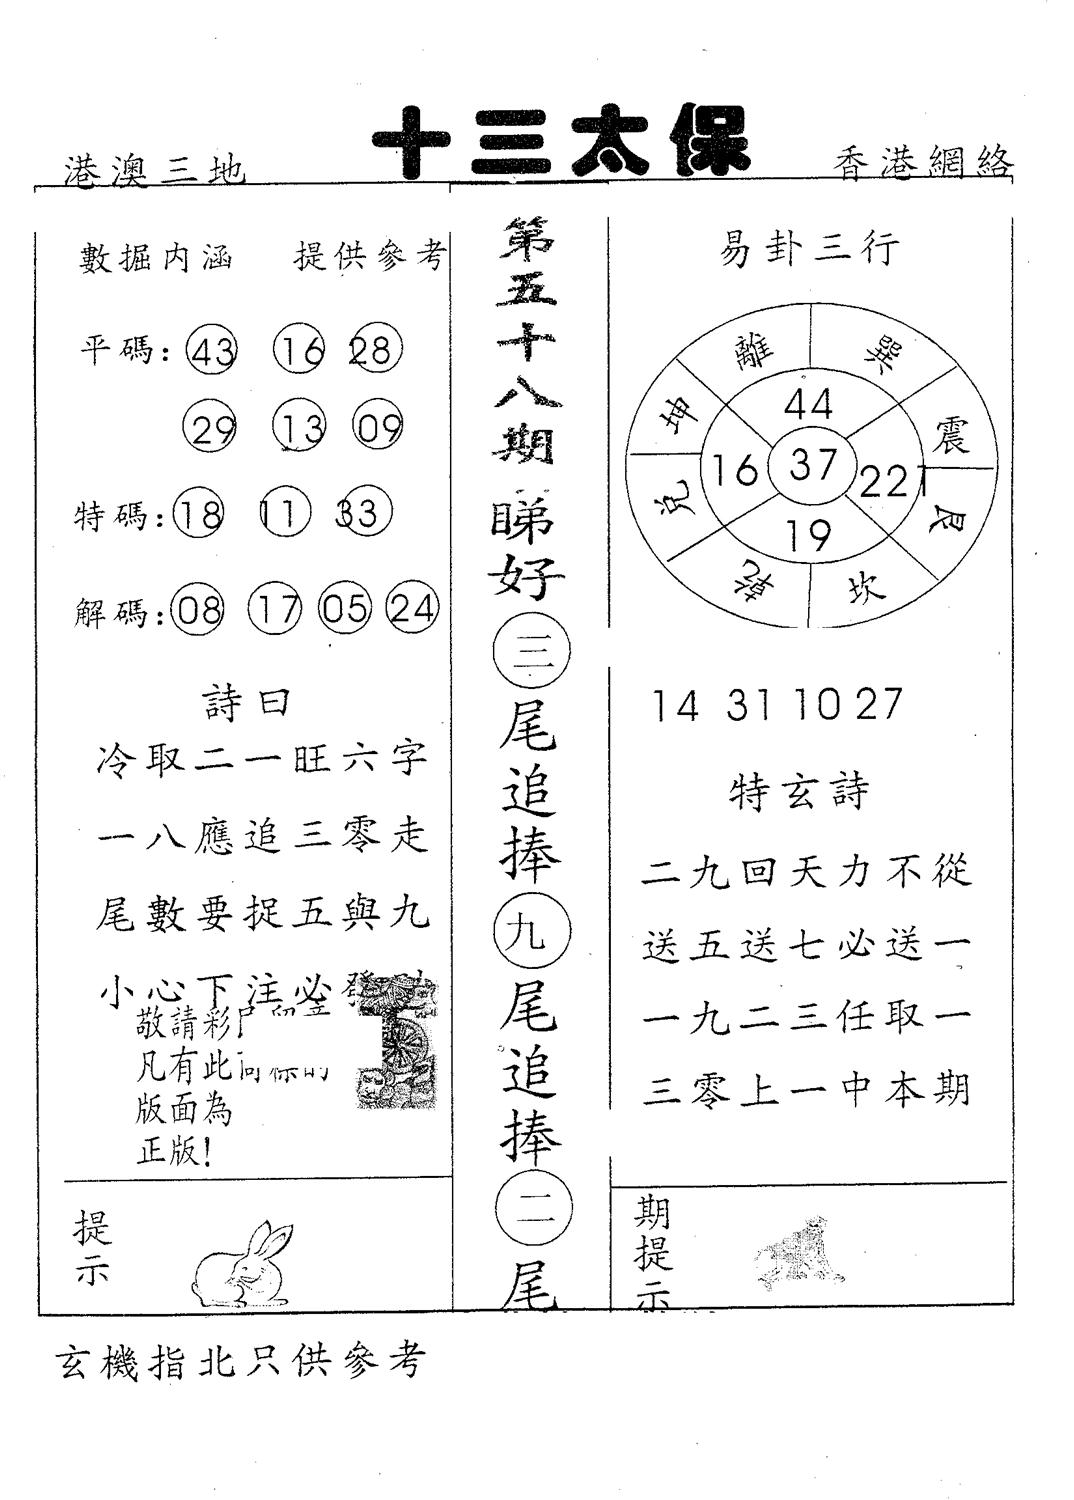 十三太保
港澳三地
香港網絡
數掘内涵 提供參考
平碼: 43 16 28
29 13 09
特碼: 18 11 33
解碼: 08 17 05 24
詩曰
冷取二一旺六字
一八應追三零走
尾數要捉五與九
小心下注必發
敬請彩
凡有此
版面為
正版!
提示
第五十八期
睇好三尾追捧九尾追捧二尾
易卦三行
離 巽
坤 震
兌 艮
乾 坎
44
16 37 221
19
14 31 10 27
特玄詩
二九回天力不從
送五送七必送一
一九二三任取一
三零上一中本期
期提示
玄機指北只供參考